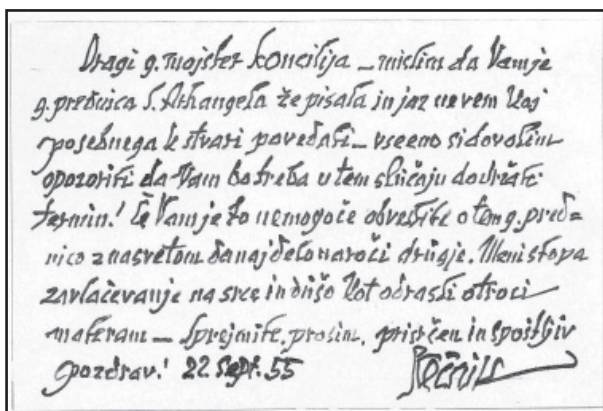 Dragi g. mojster Koncilija – mislim da Vam je
g. prednica S. Arhangela že pisala in jaz ne vem kaj
posebnega k stvari povedati – vseeno si dovolim
opozoriti da Vam bo treba v tem slučaju dovršiti
termin! Če Vam je to nemogoče obvestite o tem g. pred=
nico z nasvetom da naj delo naroči drugje. Meni stopa
zavlačevanje na srce in dušo kot odrasli otroci
materam – Sprejmite, prosim, prisrčen in spoštljiv
pozdrav! 22. Sept. 55